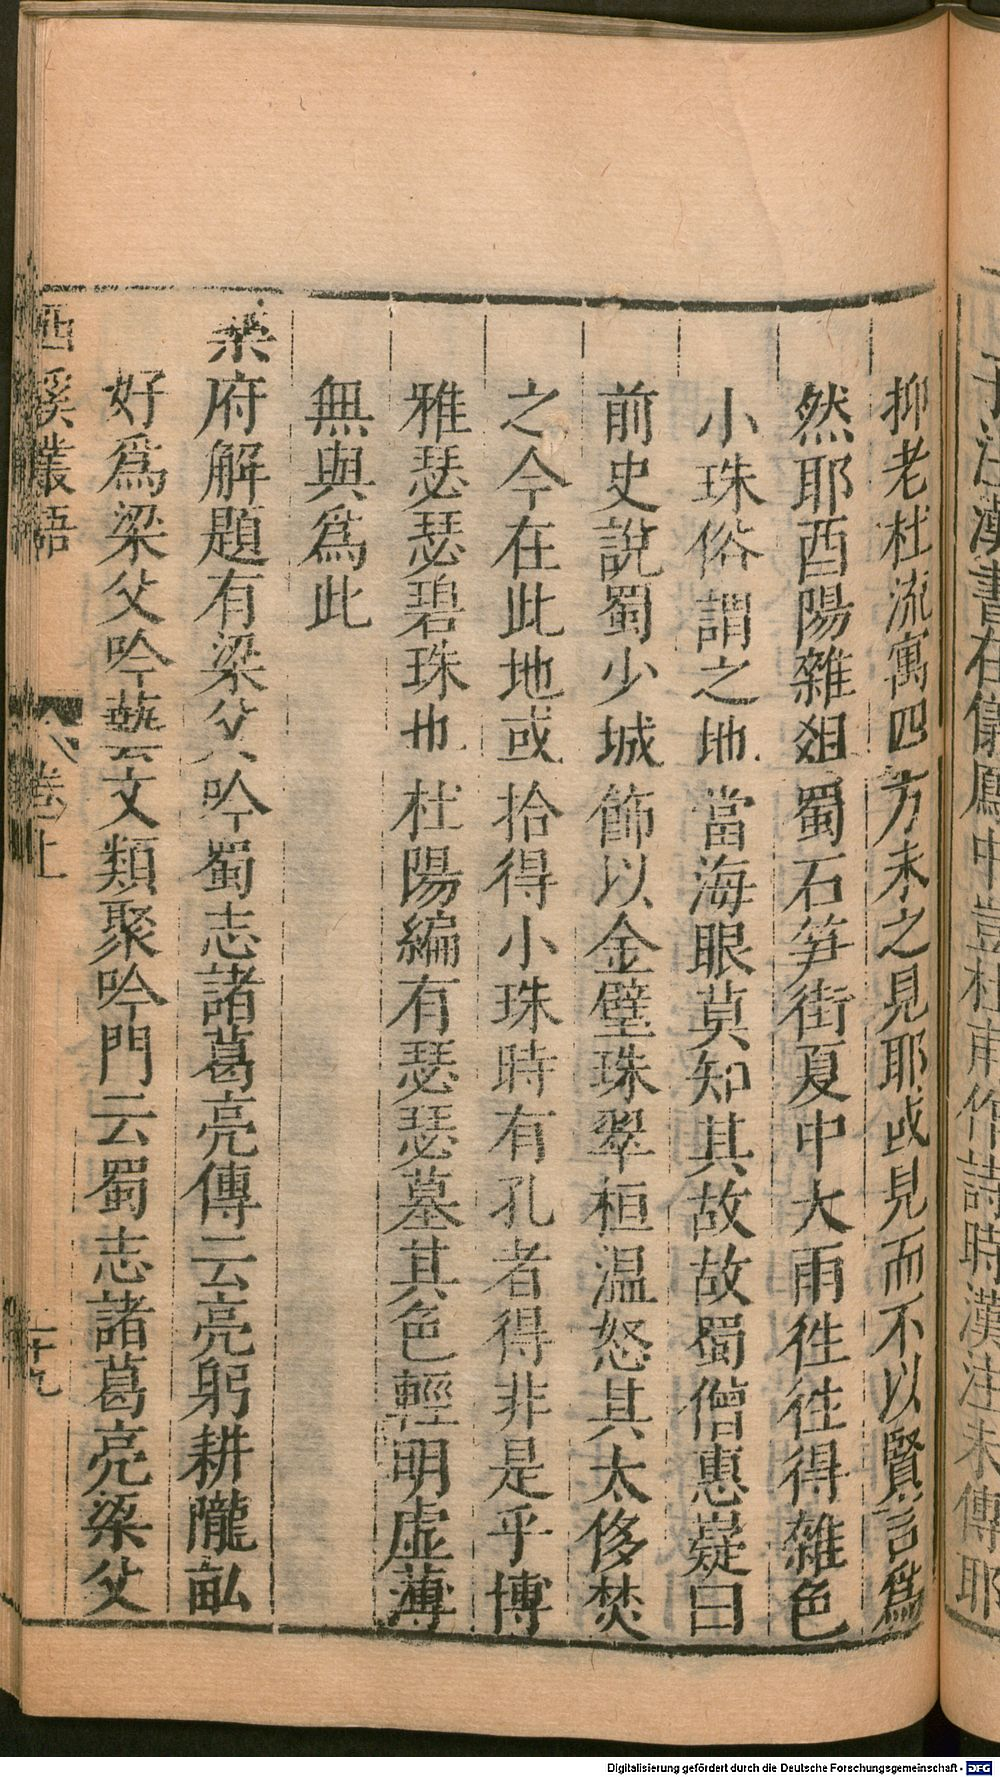 子注漢書在儀鳳中豈杜甫作詩時漢注未傳耶
抑老杜流寓四方未之見耶或見而不以賢言爲
然耶酉陽雜俎蜀石笋街夏中大雨徃徃得雜色
小珠俗謂之地當海眼莫知其故故蜀僧惠嶷曰
前史說蜀少城飾以金璧珠翠桓温怒其太侈焚
之今在此地或拾得小珠時有孔者得非是乎博
雅瑟瑟碧珠也杜陽編有瑟瑟墓其色輕明虚薄
無與爲此
樂府解題有梁父吟蜀志諸葛亮傳云亮躬耕隴畆
好爲梁父吟藝文類聚吟門云蜀志諸葛亮梁父
西溪叢語
卷上
二十九
Digitalisierung gefördert durch die Deutsche Forschungsgemeinschaft - DFG